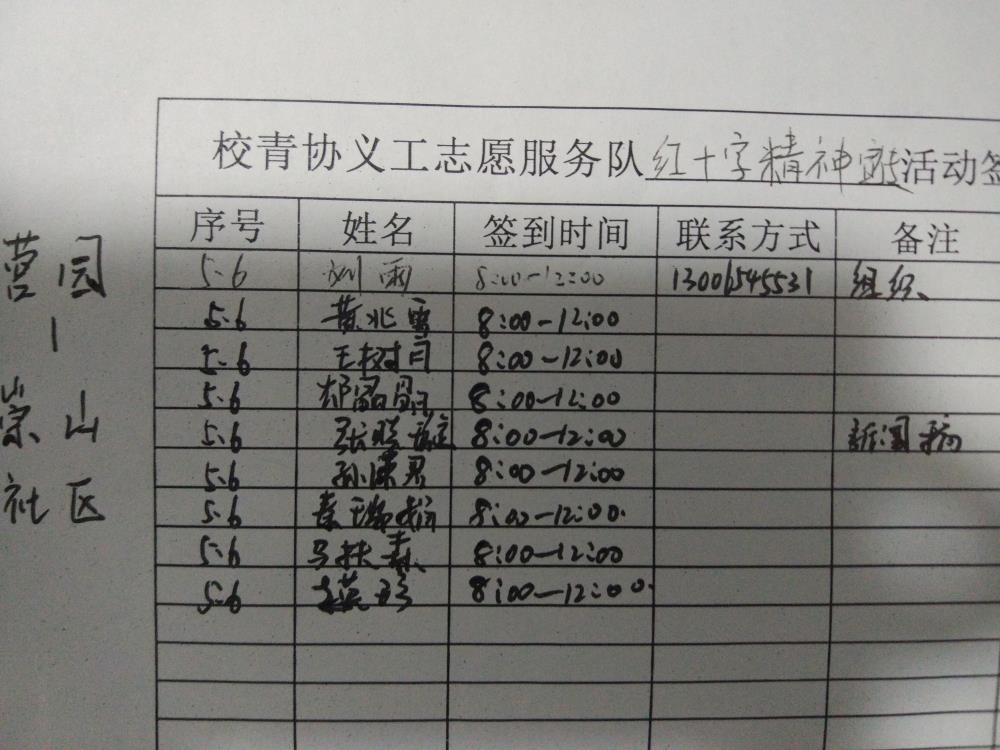 校青协义工志愿服务队红十字精神宣传活动签
序号 姓名 签到时间 联系方式 备注
5.6 刘雨 8:00-12:00 13006545531 组织
5.6 黄兆雪 8:00-12:00
5.6 8:00-12:00
5.6 8:00-12:00
5.6 张晓 8:00-12:00 新闻稿
5.6 孙 8:00-12:00
5.6 秦 8:00-12:00
5.6 马扶森 8:00-12:00
5.6 8:00-12:00
营园
崇山
社区